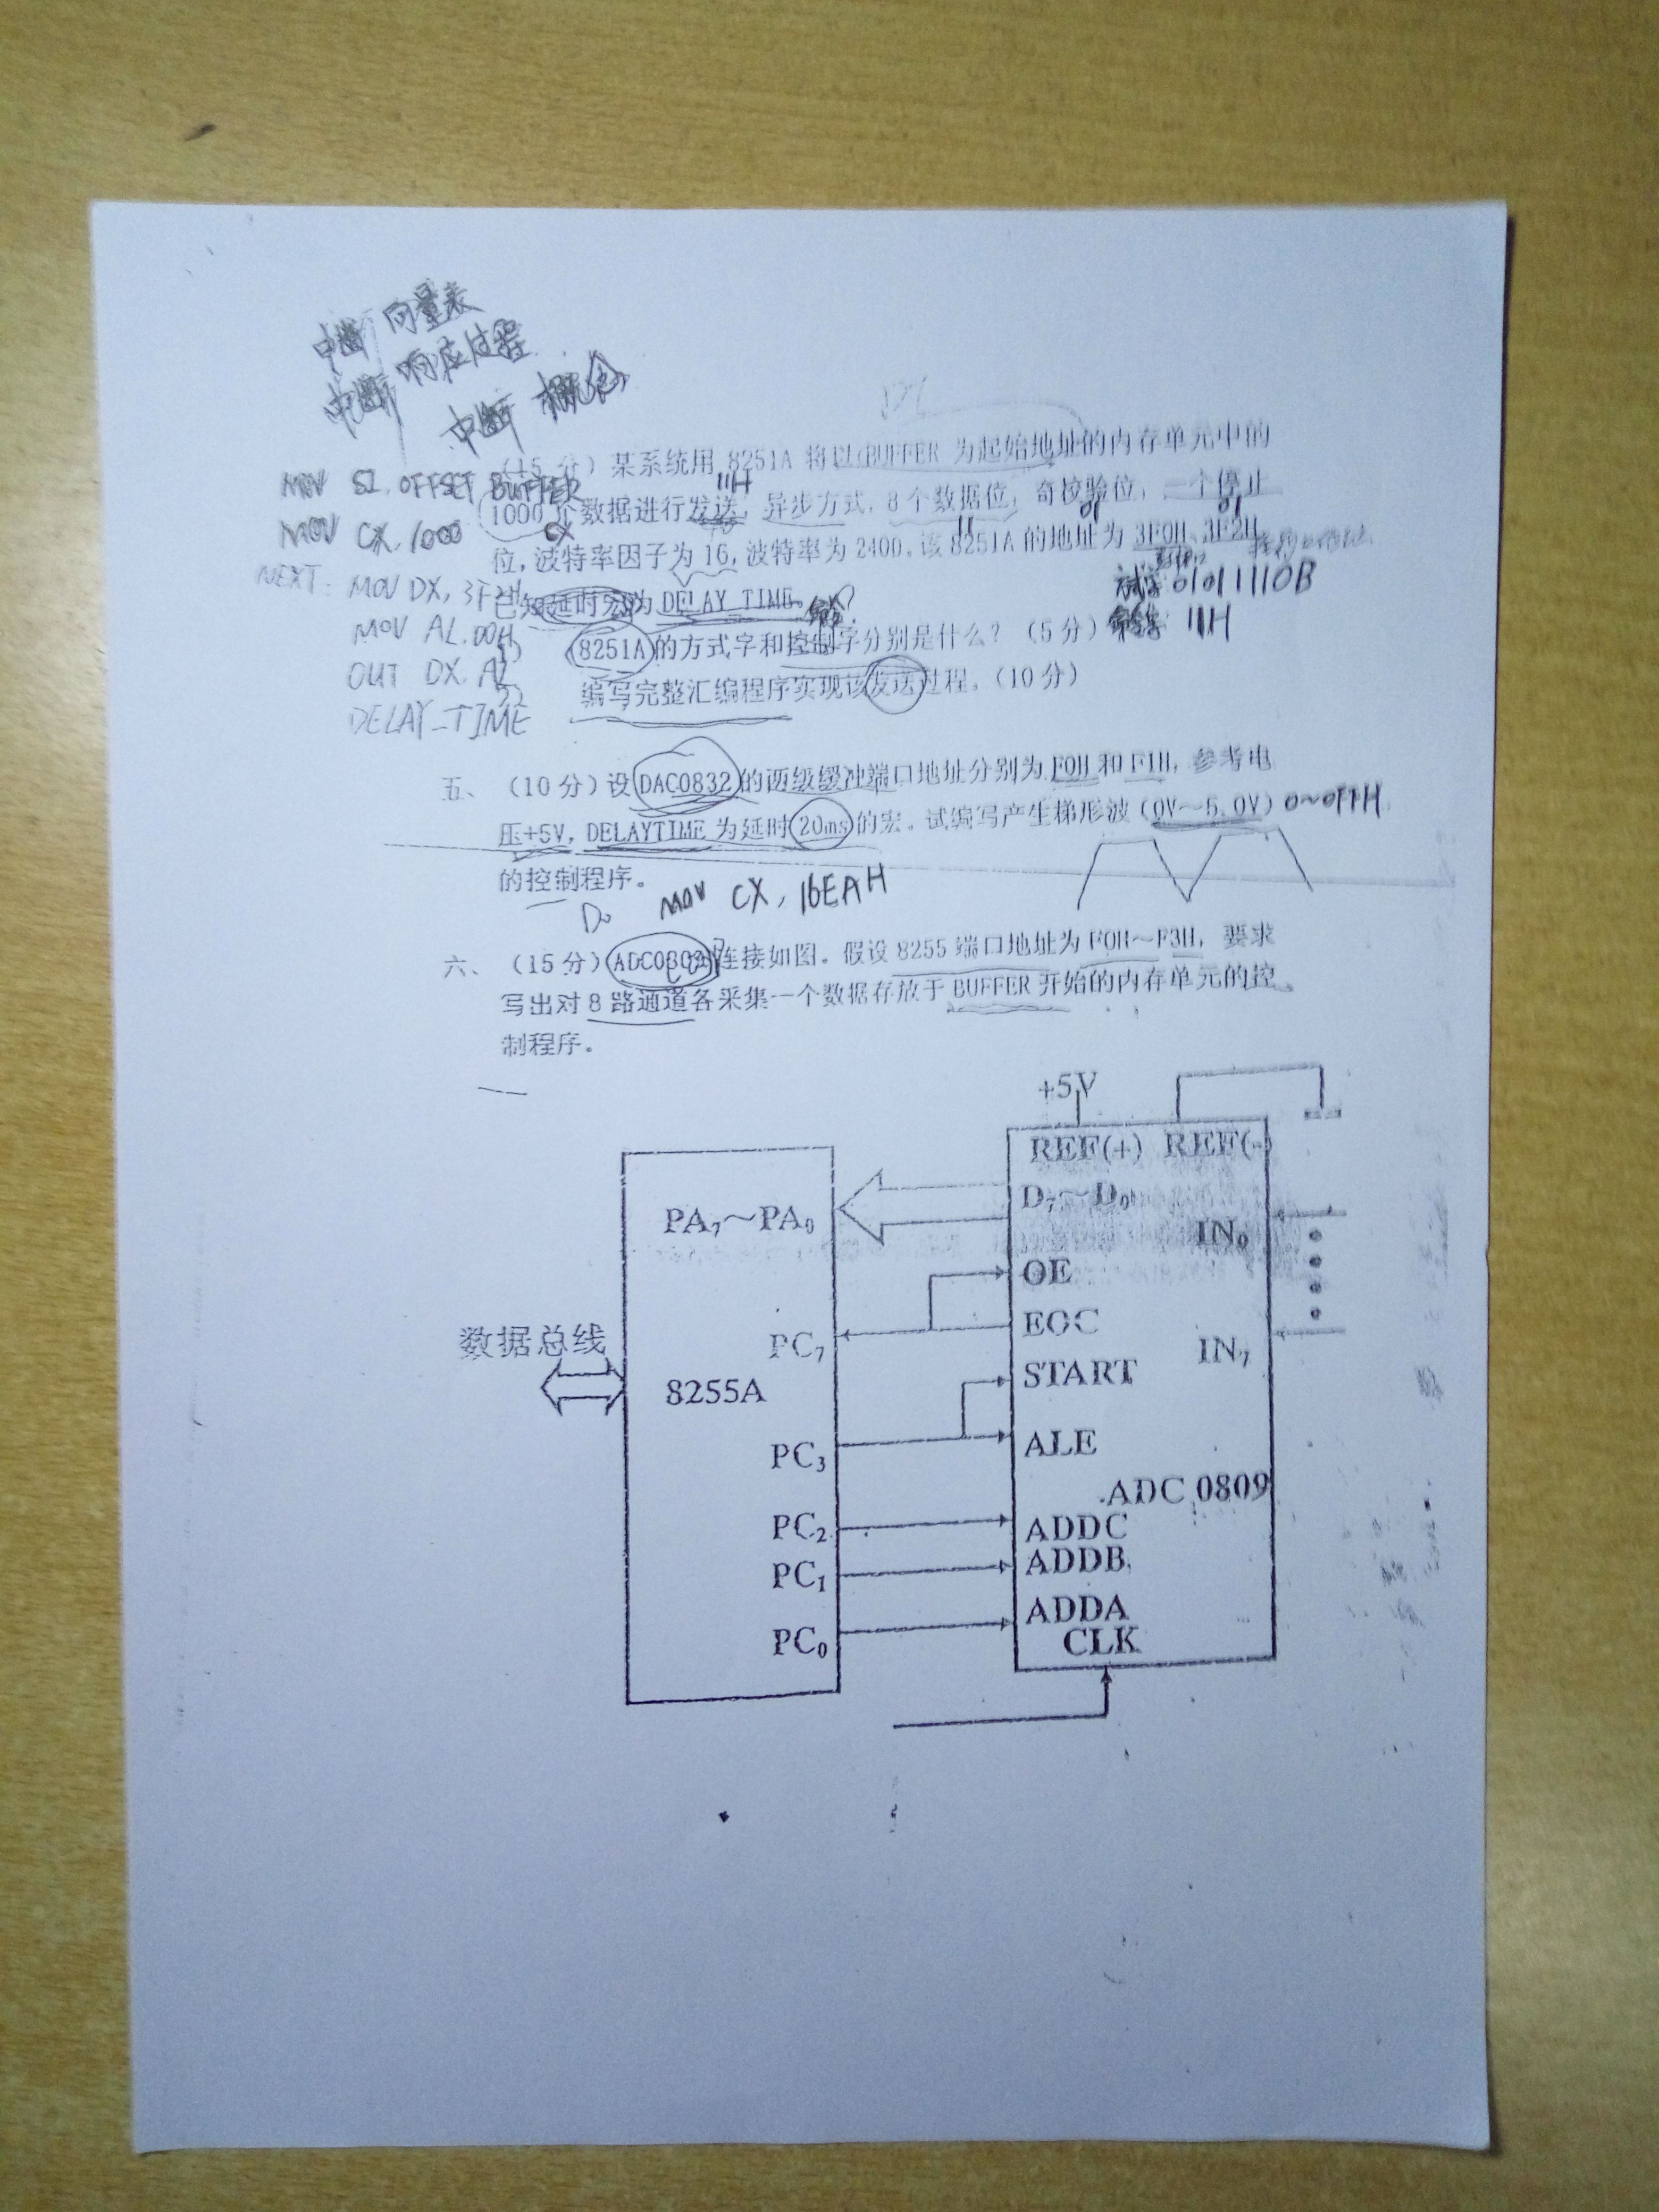 中断 向量表
中断 响应过程
中断 概念
(15 分) 某系统用 8251A 将以 BUFFER 为起始地址的内存单元中的
MOV SI, OFFSET BUFFER
11H
1000 个数据进行发送, 异步方式, 8 个数据位, 奇校验位, 一个停止
MOV CX, 1000
CX
11
01
01
位, 波特率因子为 16, 波特率为 2400, 该 8251A 的地址为 3F0H、3F2H
NEXT: MOV DX, 3F2H
已知延时宏为 DELAY_TIME。
01011110B
MOV AL, 00H
8251A 的方式字和控制字分别是什么? (5 分)
11H
OUT DX, AL
编写完整汇编程序实现该发送过程。(10 分)
DELAY_TIME
五、 (10 分) 设 DAC0832 的两级缓冲端口地址分别为 F0H 和 F1H, 参考电
压+5V, DELAYTIME 为延时 20ms 的宏。试编写产生梯形波 (0V～5.0V)
0~0FFH
的控制程序。
MOV CX, 16EAH
六、 (15 分) ADC0809 连接如图。假设 8255 端口地址为 F0H～F3H, 要求
写出对 8 路通道各采集一个数据存放于 BUFFER 开始的内存单元的控
制程序。
+5V
REF(+) REF(-)
D₇～D₀
PA₇～PA₀
IN₀
OE
EOC
PC₇
IN₇
数据总线
START
8255A
ALE
PC₃
ADC 0809
PC₂
ADDC
ADDB
PC₁
ADDA
PC₀
CLK